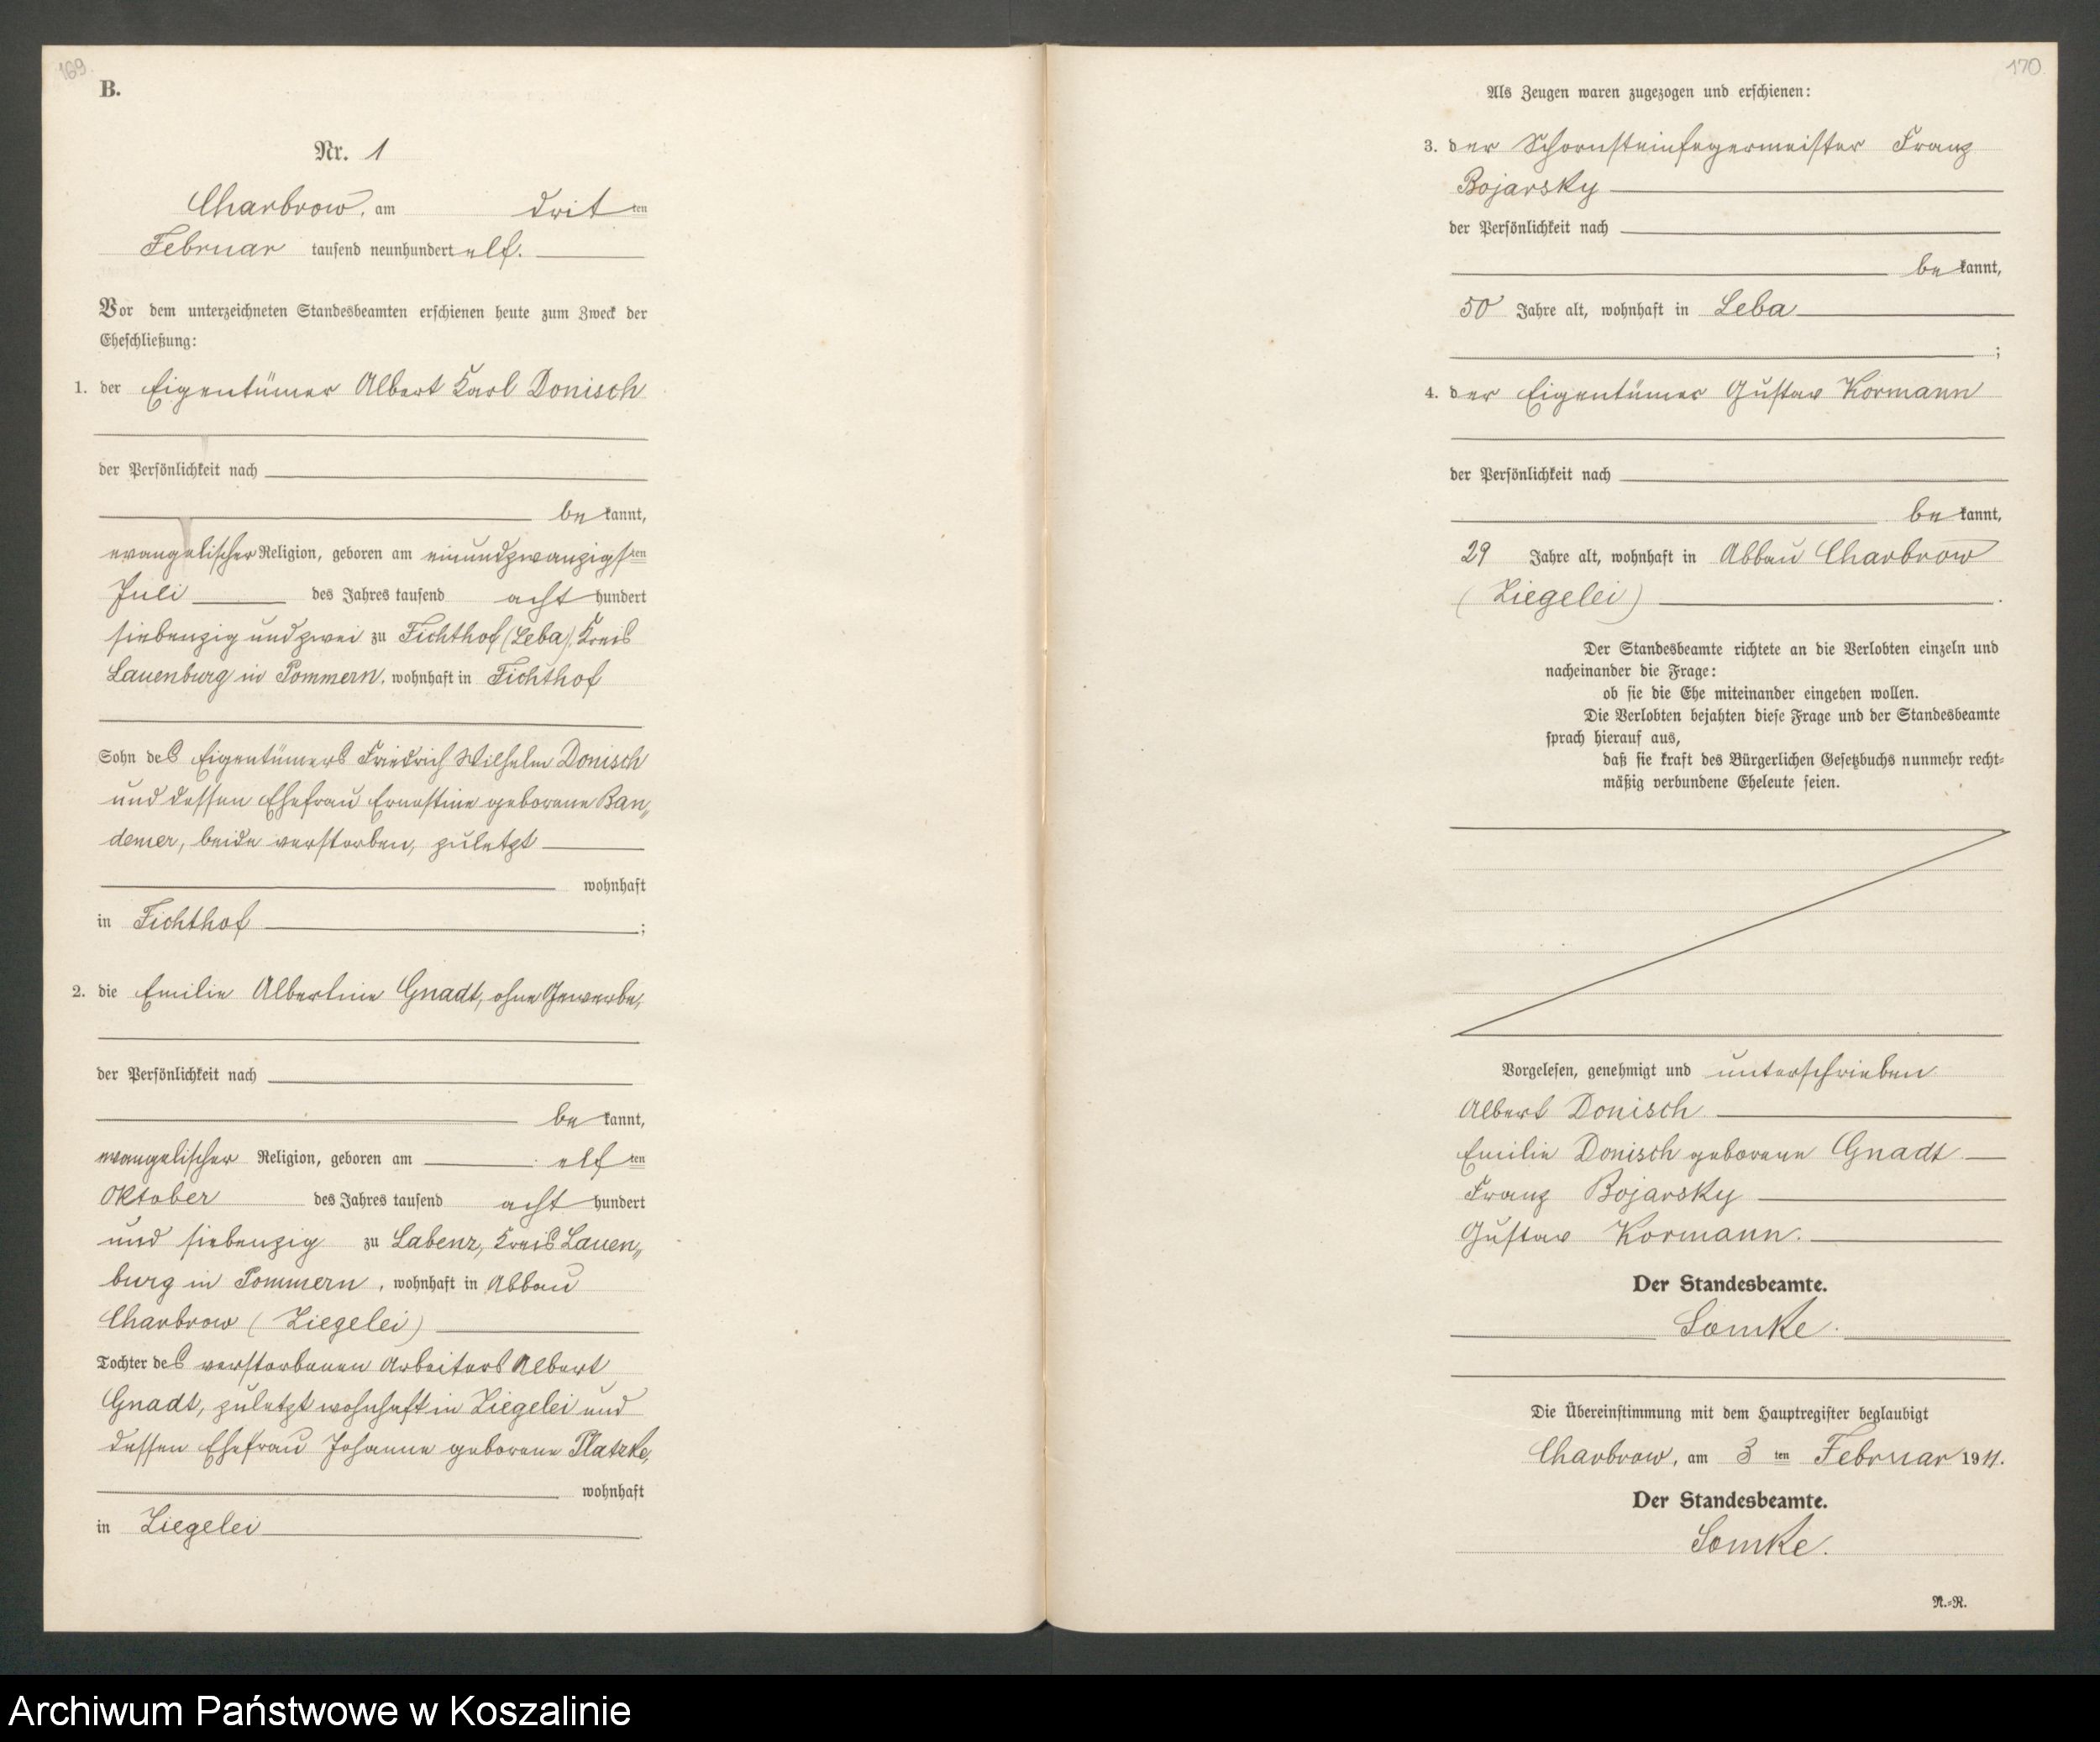 169.
B.
Nr. 1
Charbrow, am dritten
Februar tausend neunhundert elf.
Vor dem unterzeichneten Standesbeamten erschienen heute zum Zweck der
Eheschließung:
1. der Eigentümer Albert Karl Donisch
der Persönlichkeit nach
be kannt,
evangelischer Religion, geboren am einundzwanzigsten
Juli des Jahres tausend acht hundert
siebenzig und zwei zu Fichthof (Leba), Kreis
Lauenburg in Pommern, wohnhaft in Fichthof
Sohn des Eigentümers Friedrich Wilhelm Donisch
und dessen Ehefrau Ernestine geborene Ban„
demer, beide verstorben, zuletzt
wohnhaft
in Fichthof ;
2. die Emilie Albertine Gnadt, ohne Gewerbe,
der Persönlichkeit nach
be kannt,
evangelischer Religion, geboren am elften
Oktober des Jahres tausend acht hundert
und siebenzig zu Labenz, Kreis Lauen„
burg in Pommern, wohnhaft in Abbau
Charbrow (Ziegelei)
Tochter des verstorbenen Arbeiters Albert
Gnadt, zuletzt wohnhaft in Ziegelei und
dessen Ehefrau Johanne geborene Platzke,
wohnhaft
in Ziegelei
170
Als Zeugen waren zugezogen und erschienen:
3. der Schornsteinfegermeister Franz
Bojarsky
der Persönlichkeit nach
be kannt,
50 Jahre alt, wohnhaft in Leba
;
4. der Eigentümer Gustav Kormann
der Persönlichkeit nach
be kannt,
29 Jahre alt, wohnhaft in Abbau Charbrow
(Ziegelei) .
Der Standesbeamte richtete an die Verlobten einzeln und
nacheinander die Frage:
ob sie die Ehe miteinander eingehen wollen.
Die Verlobten bejahten diese Frage und der Standesbeamte
sprach hierauf aus,
daß sie kraft des Bürgerlichen Gesetzbuchs nunmehr recht-
mäßig verbundene Eheleute seien.
Vorgelesen, genehmigt und unterschrieben
Albert Donisch
Emilie Donisch geborene Gnadt
Franz Bojarsky
Gustav Kormann.
Der Standesbeamte.
Somke.
Die Übereinstimmung mit dem Hauptregister beglaubigt
Charbrow, am 3 ten Februar 1911.
Der Standesbeamte.
Somke.
N.-R.
Archiwum Państwowe w Koszalinie